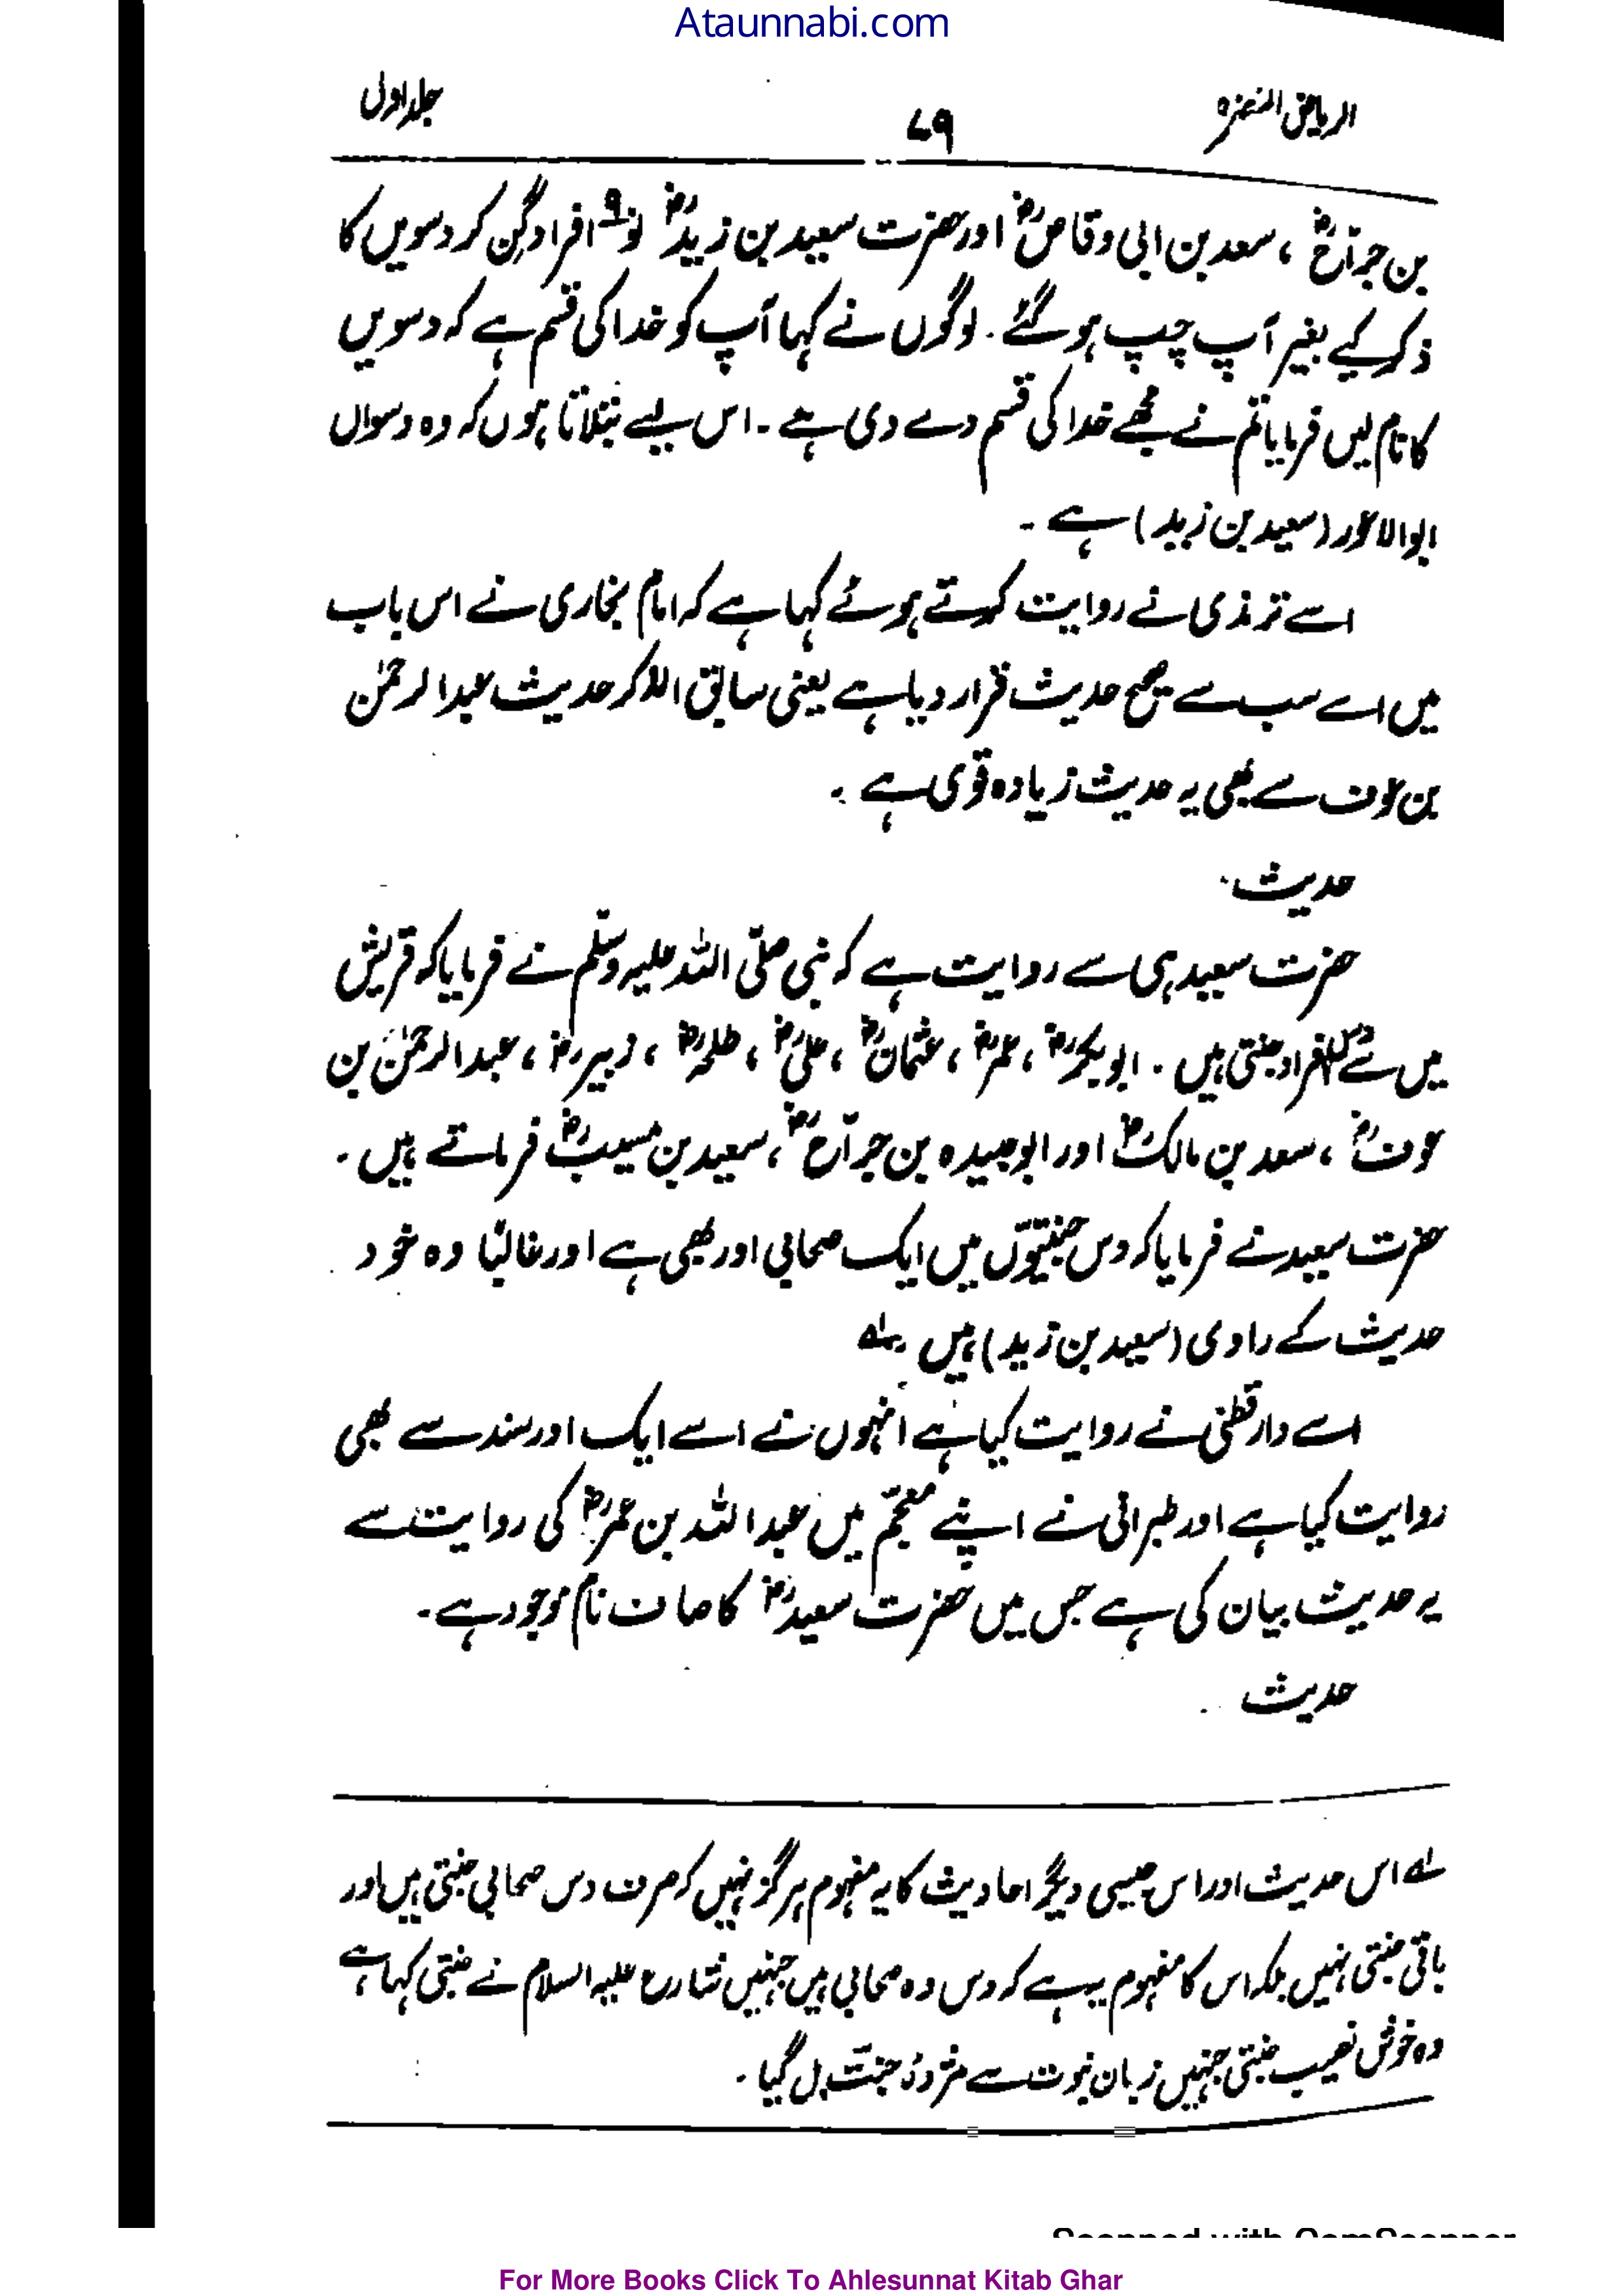 Ataunnabi.com
الریاض النضرہ ۷۹ جلد اول
بن جراحؓ ، سعد بن ابی وقاصؓ اور حضرت سعید بن زیدؓ نو ۹ افراد گن کر دسویں کا
ذکر کیے بغیر آپ چپ ہو گئے۔ لوگوں نے کہا آپ کو خدا کی قسم ہے کہ دسویں
کا نام لیں فرمایا تم نے مجھے خدا کی قسم دے دی ہے۔ اس لیے بتلاتا ہوں کہ وہ دسواں
ابوالاعور (سعید بن زید) ہے۔
اسے ترمذی نے روایت کرتے ہوئے کہا ہے کہ امام بخاری نے اس باب
میں اسے سب سے صحیح حدیث قرار دیا ہے یعنی سابق الذکر حدیث عبدالرحمٰن
بن عوف سے بھی یہ حدیث زیادہ قوی ہے۔
حدیث
حضرت سعید ہی سے روایت ہے کہ نبی صلّی اللہ علیہ وسلّم نے فرمایا کہ قریش
میں سے افراد جنتی ہیں۔ ابوبکرؓ ، عمرؓ ، عثمانؓ ، علیؓ ، طلحہؓ ، زبیرؓ ، عبدالرحمٰن بن
عوفؓ ، سعد بن مالکؓ اور ابوعبیدہ بن جراحؓ ، سعید بن مسیبؓ فرماتے ہیں۔
حضرت سعید نے فرمایا کہ دس جنتیوں میں ایک صحابی اور بھی ہے اور غالبًا وہ خود
حدیث کے راوی (سعید بن زید) ہیں۔ لہ
اسے دارقطنی نے روایت کیا ہے انہوں نے اسے ایک اور سند سے بھی
روایت کیا ہے اور طبرانی نے اپنے معجم میں عبداللہ بن عمرؓ کی روایت سے
یہ حدیث بیان کی ہے جس میں حضرت سعیدؓ کا صاف نام موجود ہے۔
حدیث
لہ اس حدیث اور اس جیسی دیگر احادیث کا یہ مفہوم ہرگز نہیں کہ صرف دس صحابی جنتی ہیں اور
باقی جنتی نہیں بلکہ اس کا مفہوم یہ ہے کہ دس وہ صحابی ہیں جنہیں شارع علیہ السلام نے جنتی کہا ہے
وہ خوش نصیب جنتی جنہیں زبان نبوت سے مژدۂ جنت مل گیا۔
Scanned with CamScanner
For More Books Click To Ahlesunnat Kitab Ghar